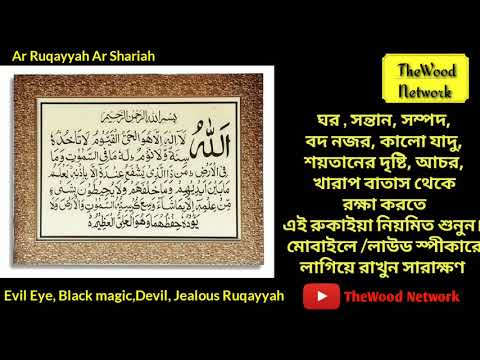 Ar Ruqayyah Ar Shariah
TheWood
Network
بسم الله الرحمن الرحيم
الله لا إله إلا هو الحي القيوم لا تأخذه
سنة ولا نوم له ما في السموت وما
في الأرض من ذا الذي يشفع عنده إلا بإذنه يعلم
ما بين أيديهم وما خلفهم ولا يحيطون بشيء
من علمه إلا بما شاء وسع كرسيه السموت والأرض ولا
يؤده حفظهما وهو العلي العظيم
ঘর , সন্তান, সম্পদ,
বদ নজর, কালো যাদু,
শয়তানের দৃষ্টি, আচর,
খারাপ বাতাস থেকে
রক্ষা করতে
এই রুকাইয়া নিয়মিত শুনুন।
মোবাইলে /লাউড স্পীকারে
লাগিয়ে রাখুন সারাক্ষণ
Evil Eye, Black magic,Devil, Jealous Ruqayyah
TheWood Network